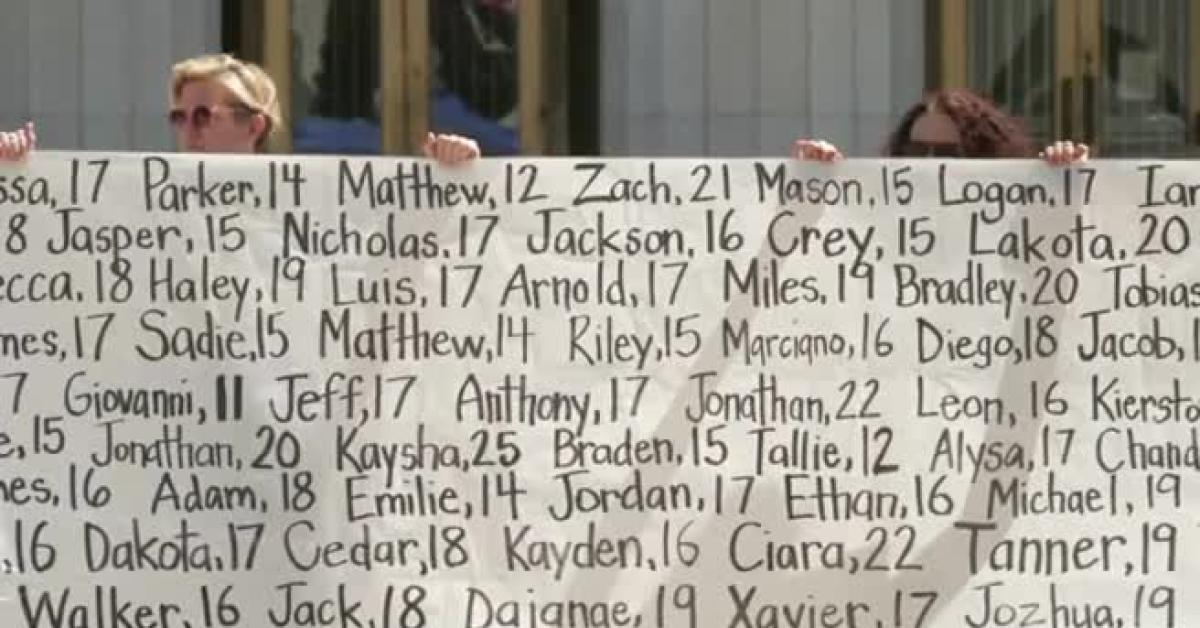 ssa, 17 Parker, 14 Matthew, 12 Zach, 21 Mason, 15 Logan, 17 Ian
8 Jasper, 15 Nicholas, 17 Jackson, 16 Crey, 15 Lakota, 20
ecca, 18 Haley, 19 Luis, 17 Arnold, 17 Miles, 19 Bradley, 20 Tobias
mes, 17 Sadie, 15 Matthew, 14 Riley, 15 Marciano, 16 Diego, 18 Jacob, 1
7 Giovanni, 11 Jeff, 17 Anthony, 17 Jonathan, 22 Leon, 16 Kiersta
e, 15 Jonathan, 20 Kaysha, 25 Braden, 15 Tallie, 12 Alysa, 17 Chand
mes, 16 Adam, 18 Emilie, 14 Jordan, 17 Ethan, 16 Michael, 19
, 16 Dakota, 17 Cedar, 18 Kayden, 16 Ciara, 22 Tanner, 19
Walker, 16 Jack, 18 Dajanae, 19 Xavier, 17 Jozhua, 19